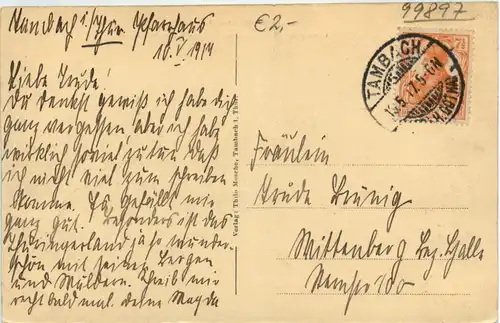 Tambach i/Thür Pfarrhaus
10.V 1917
Liebe Trude!
Du denkst gewiß ich habe dich
ganz vergessen, aber ich hab
wirklich soviel zu tun daß
ich nicht viel zum schreiben
komme. Es gefällt mir
ganz gut. Besonders ist das
Thüringerland ja so wunder-
schön mit seinen Bergen
und Wäldern. Schreib mir
recht bald mal. deine Magda
Verlag: Thilo Mosche, Tambach i. Thür.
€2,-
99897
TAMBACH
Fräulein
Trude Brünig
Wittenberg Bez. Halle